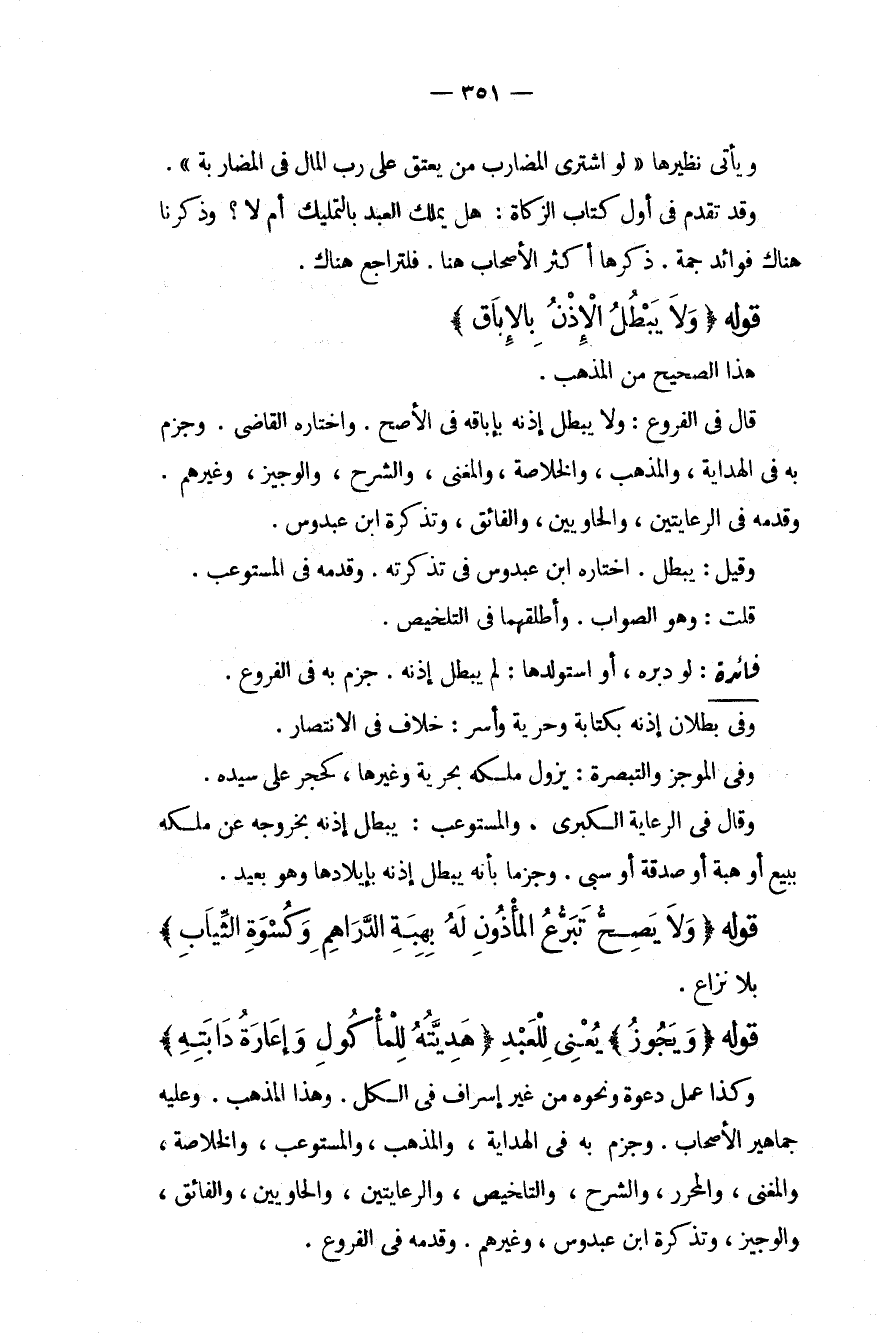 — ٣٥١ —
ويأتى نظيرها « لو اشترى المضارب من يعتق على رب المال فى المضاربة » .
وقد تقدم فى أول كتاب الزكاة : هل يملك العبد بالتمليك أم لا ؟ وذكرنا
هناك فوائد جمة . ذكرها أكثر الأصحاب هنا . فلتراجع هناك .
قوله ﴿ وَلاَ يَبْطُلُ الْإِذْنُ بِالإِبَاقِ ﴾
هذا الصحيح من المذهب .
قال فى الفروع : ولا يبطل إذنه بإباقه فى الأصح . واختاره القاضى . وجزم
به فى الهداية ، والمذهب ، والخلاصة ، والمغنى ، والشرح ، والوجيز ، وغيرهم .
وقدمه فى الرعايتين ، والحاويين ، والفائق ، وتذكرة ابن عبدوس .
وقيل : يبطل . اختاره ابن عبدوس فى تذكرته . وقدمه فى المستوعب .
قلت : وهو الصواب . وأطلقهما فى التلخيص .
فائدة : لو دبره ، أو استولدها : لم يبطل إذنه . جزم به فى الفروع .
وفى بطلان إذنه بكتابة وحرية وأسر : خلاف فى الانتصار .
وفى الموجز والتبصرة : يزول ملكه بحرية وغيرها ، كحجر على سيده .
وقال فى الرعاية الكبرى . والمستوعب : يبطل إذنه بخروجه عن ملكه
ببيع أو هبة أو صدقة أو سبى . وجزما بأنه يبطل إذنه بإيلادها وهو بعيد .
قوله ﴿ وَلاَ يَصِحُّ تَبَرُّعُ المَأْذُونِ لَهُ بِهِبَةِ الدَّرَاهِمِ وَكُسْوَةِ الثِّيَابِ ﴾
بلا نزاع .
قوله ﴿ وَيَجُوزُ ﴾ يُعْنِى لِلْعَبْدِ ﴿ هَدِيَّتُهُ لِلْمَأْكُولِ وَإِعَارَةُ دَابَتِهِ ﴾
وكذا عمل دعوة ونحوه من غير إسراف فى الكل . وهذا المذهب . وعليه
جماهير الأصحاب . وجزم به فى الهداية ، والمذهب ، والمستوعب ، والخلاصة ،
والمغنى ، والمحرر ، والشرح ، والتلخيص ، والرعايتين ، والحاويين ، والفائق ،
والوجيز ، وتذكرة ابن عبدوس ، وغيرهم . وقدمه فى الفروع .